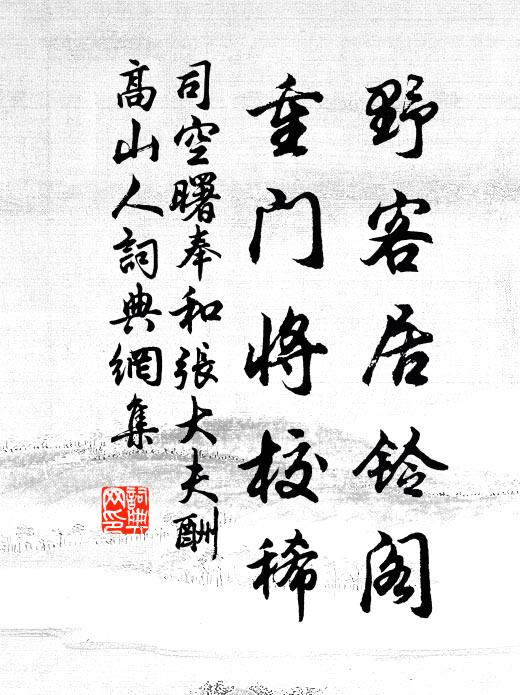 野客居铃阁
重门将校稀
司空曙奉和张大夫酬
高山人词典网集
词典网印